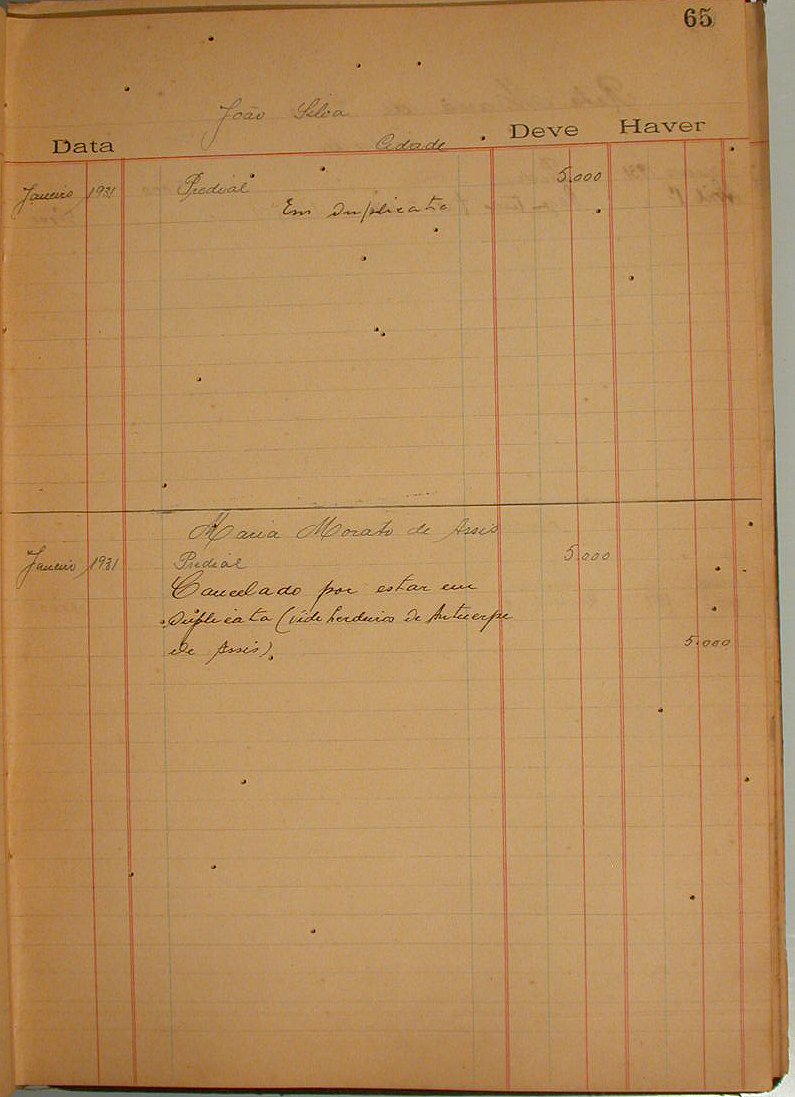 65
João Silva
Data Cidade Deve Haver
Janeiro 1931 Predial 5.000
Em duplicata
Maria Morato de Assis
Janeiro 1931 Predial 5.000
Cancelado por estar em
duplicata (vide herdeiros de Antuerpe
de Assis). 5.000